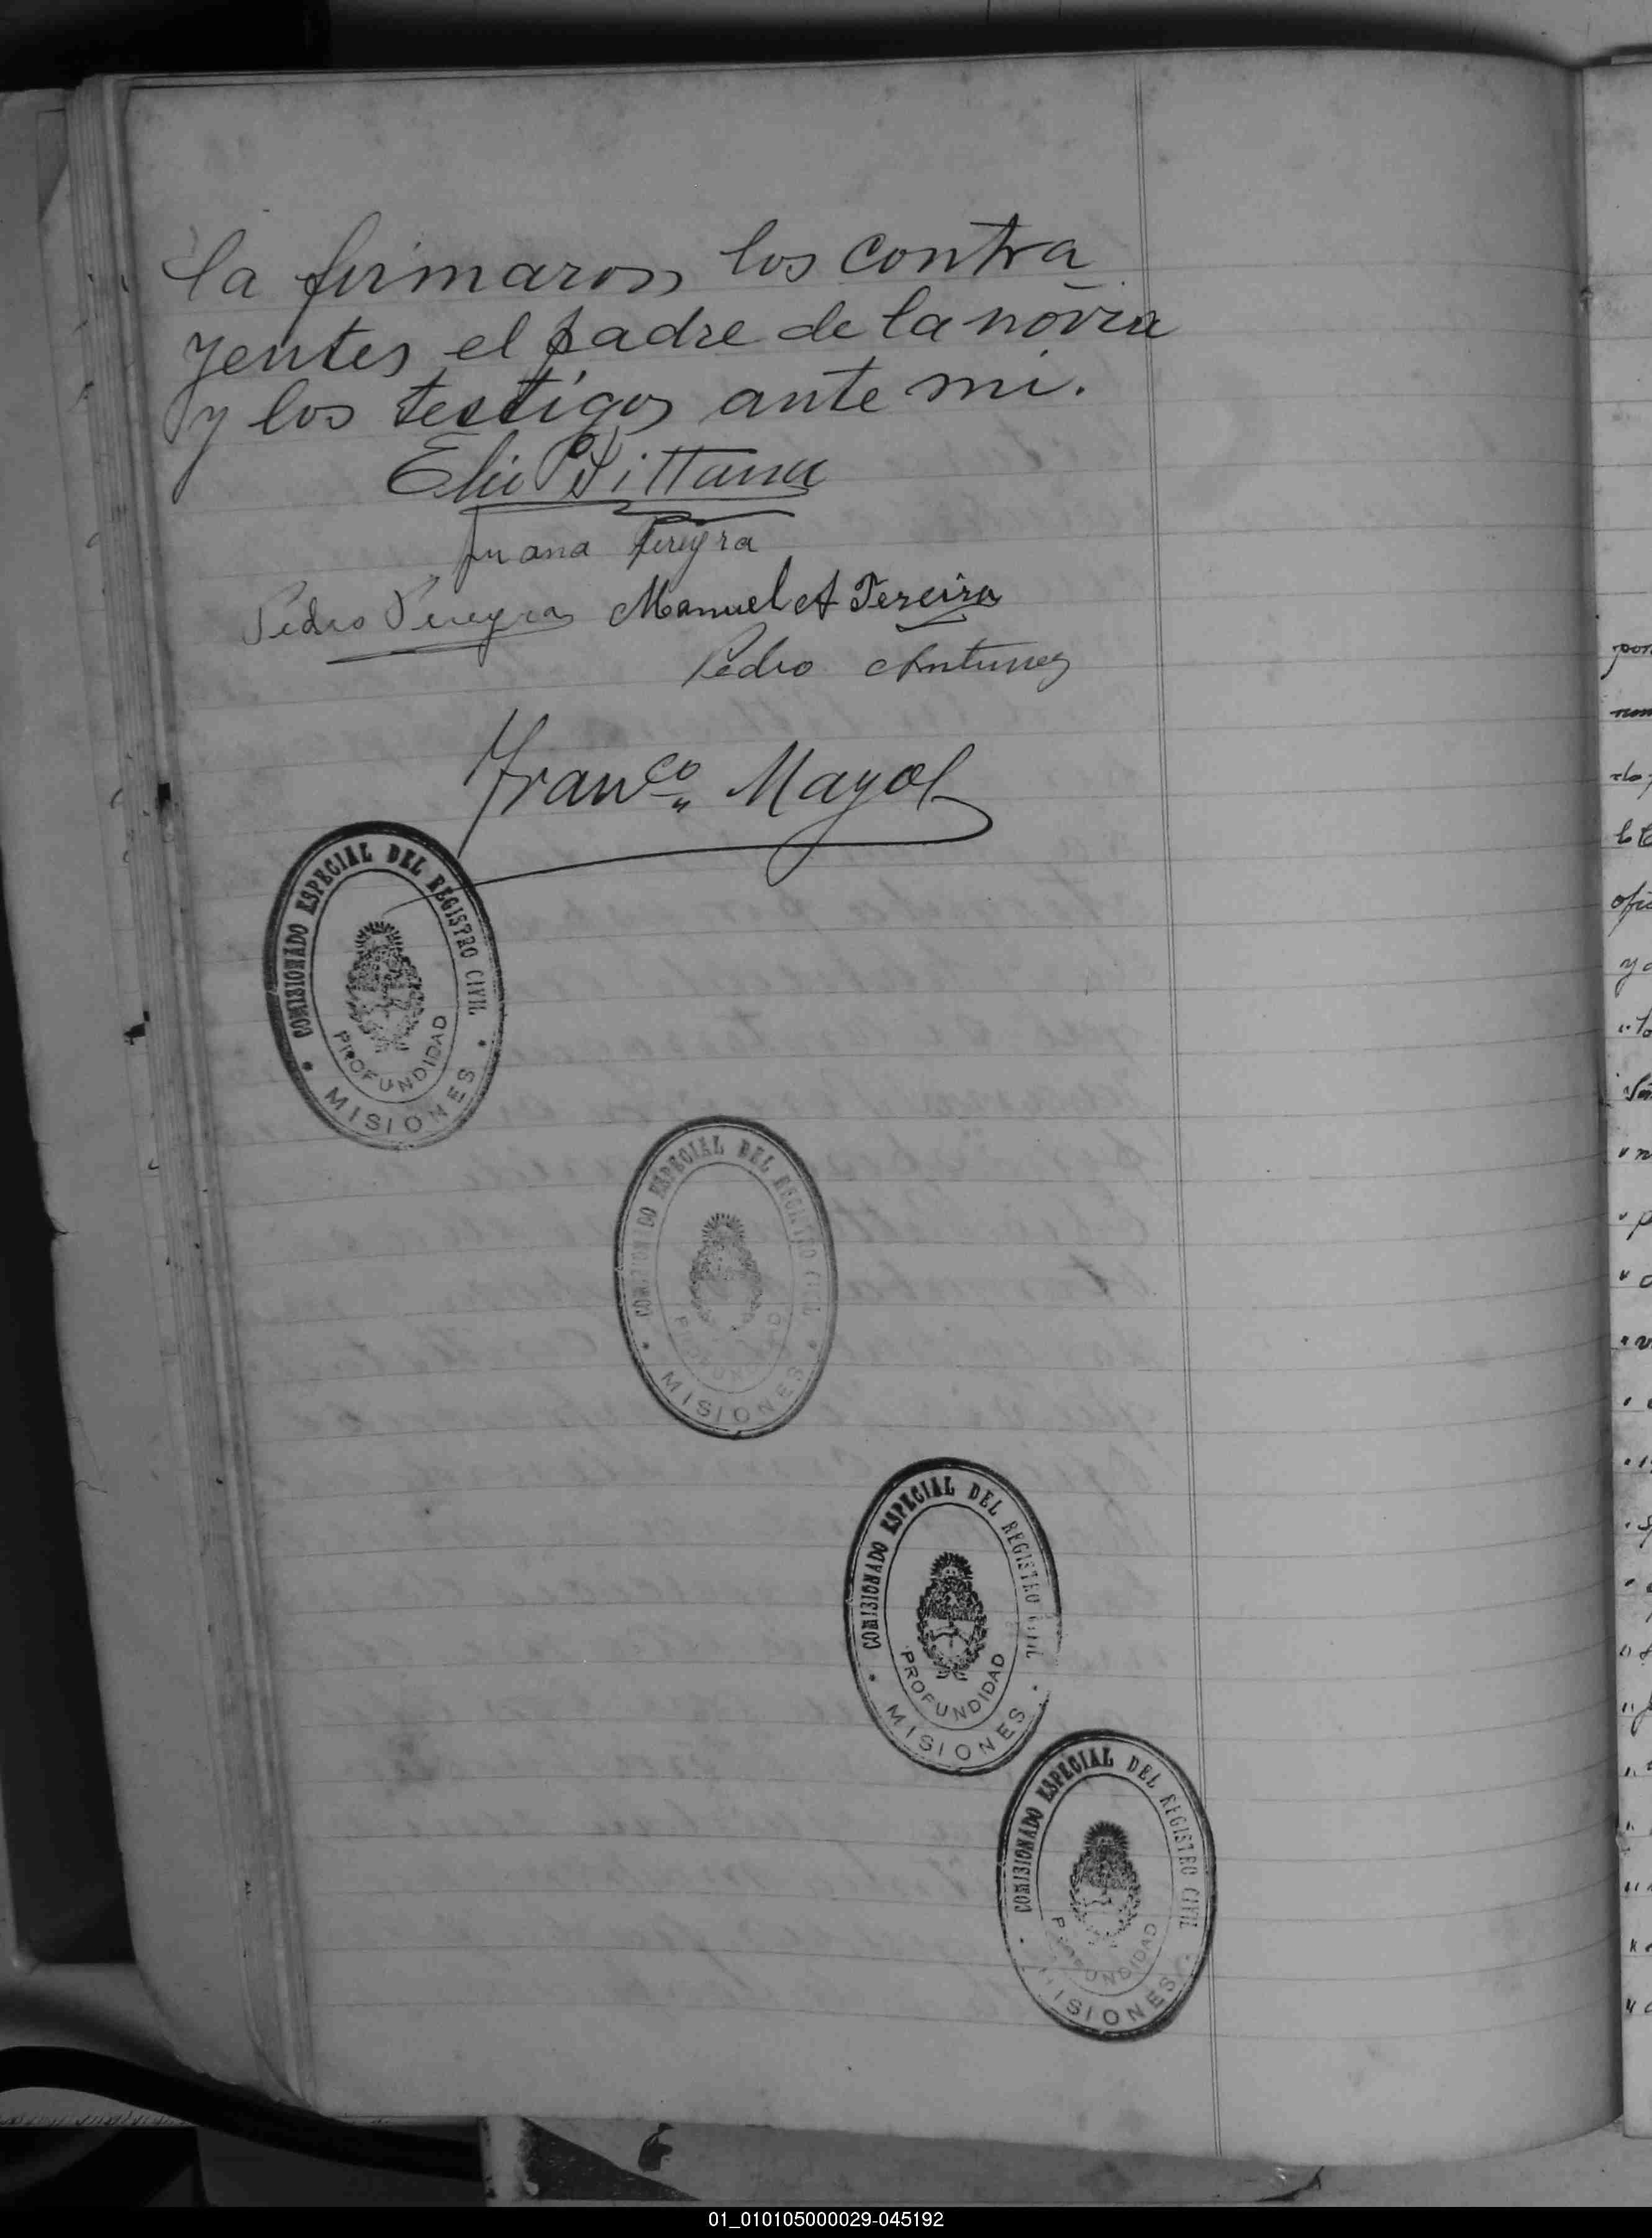 la firmaron los contra
yentes el padre de la novia
y los testigos ante mi.
Elio Pittana
Juana Pereyra
Pedro Pereyra Manuel A Pereira
Pedro Antunez
Franco Mayol
COMISIONADO ESPECIAL DEL REGISTRO CIVIL
PROFUNDIDAD
MISIONES
COMISIONADO ESPECIAL DEL REGISTRO CIVIL
PROFUNDIDAD
MISIONES
COMISIONADO ESPECIAL DEL REGISTRO CIVIL
PROFUNDIDAD
MISIONES
COMISIONADO ESPECIAL DEL REGISTRO CIVIL
PROFUNDIDAD
MISIONES
01_010105000029-045192